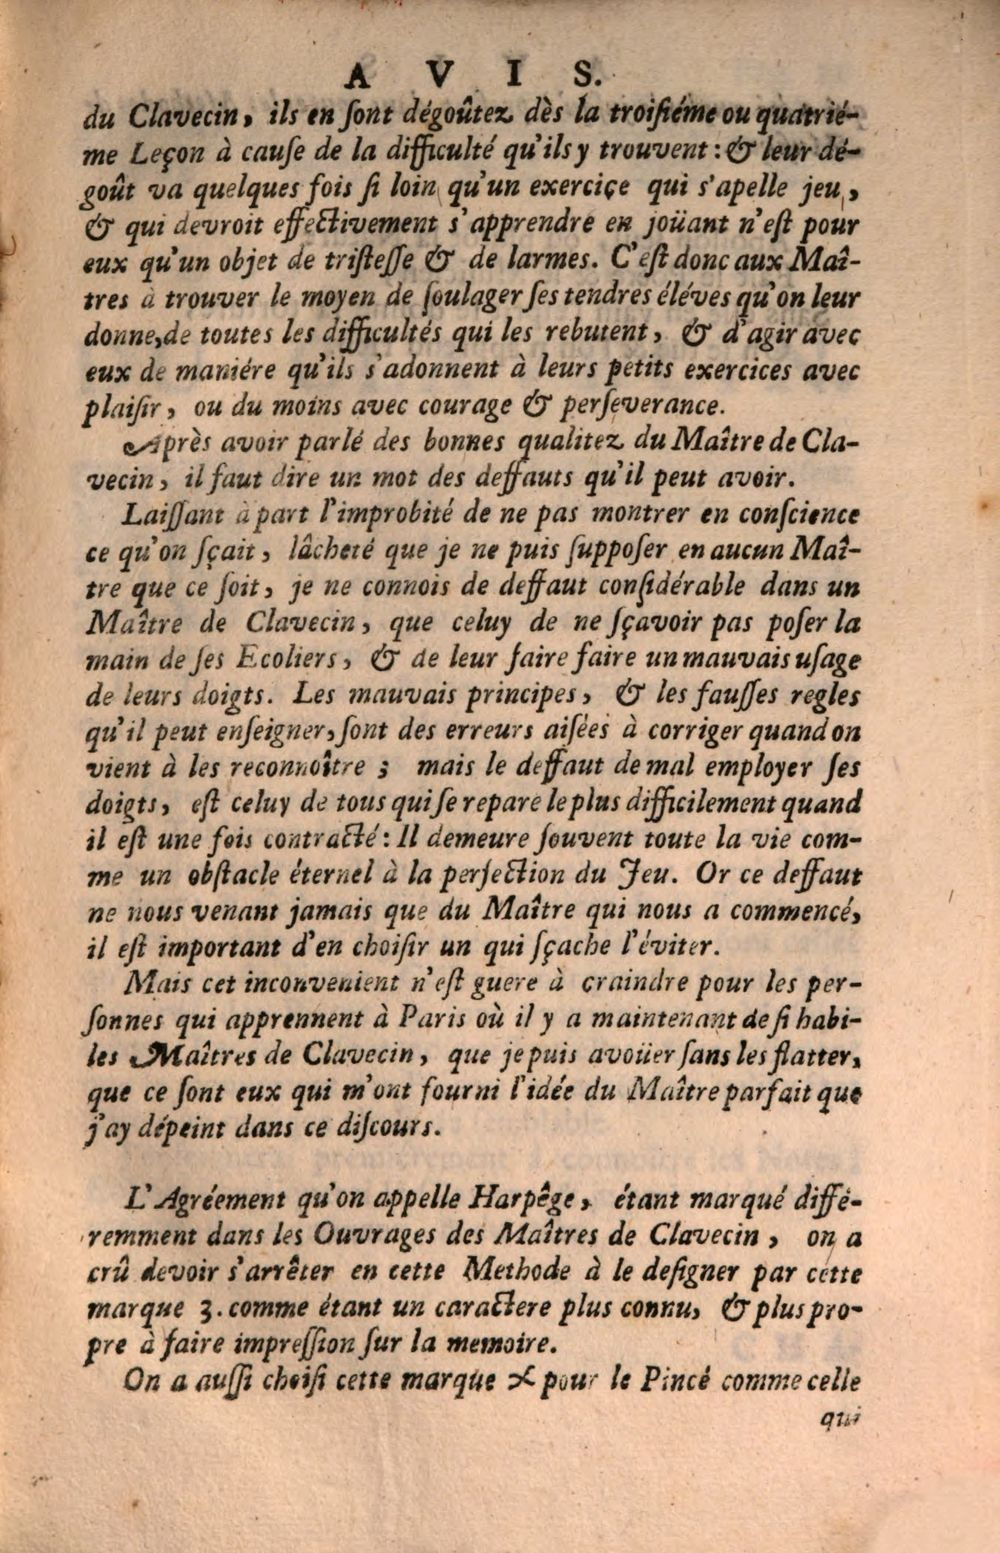 A V I S.
du Clavecin, ils en ſont dégoûtez dès la troiſiéme ou quatrié-
me Leçon à cauſe de la difficulté qu'ils y trouvent : & leur dé-
goût va quelques fois ſi loin qu'un exerciçe qui s'apelle jeu,
& qui devroit effectivement s'apprendre en joüant n'eſt pour
eux qu'un objet de triſteſſe & de larmes. C'eſt donc aux Maî-
tres à trouver le moyen de ſoulager ſes tendres éléves qu'on leur
donne, de toutes les difficultés qui les rebutent, & d'agir avec
eux de maniére qu'ils s'adonnent à leurs petits exercices avec
plaiſir, ou du moins avec courage & perſeverance.
Après avoir parlé des bonnes qualitez du Maître de Cla-
vecin, il faut dire un mot des deffauts qu'il peut avoir.
Laiſſant à part l'improbité de ne pas montrer en conſcience
ce qu'on ſçait, lâcheté que je ne puis ſuppoſer en aucun Maî-
tre que ce ſoit, je ne connois de deffaut conſidérable dans un
Maître de Clavecin, que celuy de ne ſçavoir pas poſer la
main de ſes Ecoliers, & de leur faire faire un mauvais uſage
de leurs doigts. Les mauvais principes, & les fauſſes regles
qu'il peut enſeigner, ſont des erreurs aiſées à corriger quand on
vient à les reconnoître ; mais le deffaut de mal employer ſes
doigts, eſt celuy de tous qui ſe repare le plus difficilement quand
il eſt une fois contracté : Il demeure ſouvent toute la vie com-
me un obſtacle éternel à la perfection du Jeu. Or ce deffaut
ne nous venant jamais que du Maître qui nous a commencé,
il eſt important d'en choiſir un qui ſçache l'éviter.
Mais cet inconvenient n'eſt guere à craindre pour les per-
ſonnes qui apprennent à Paris où il y a maintenant de ſi habi-
les Maîtres de Clavecin, que je puis avoüer ſans les flatter,
que ce ſont eux qui m'ont fourni l'idée du Maître parfait que
j'ay dépeint dans ce diſcours.
L'Agréement qu'on appelle Harpêge, étant marqué diffé-
remment dans les Ouvrages des Maîtres de Clavecin, on a
crû devoir s'arrêter en cette Methode à le deſigner par cette
marque ʒ. comme étant un caractere plus connu, & plus pro-
pre à faire impreſſion ſur la memoire.
On a auſſi choiſi cette marque pour le Pincé comme celle
qui